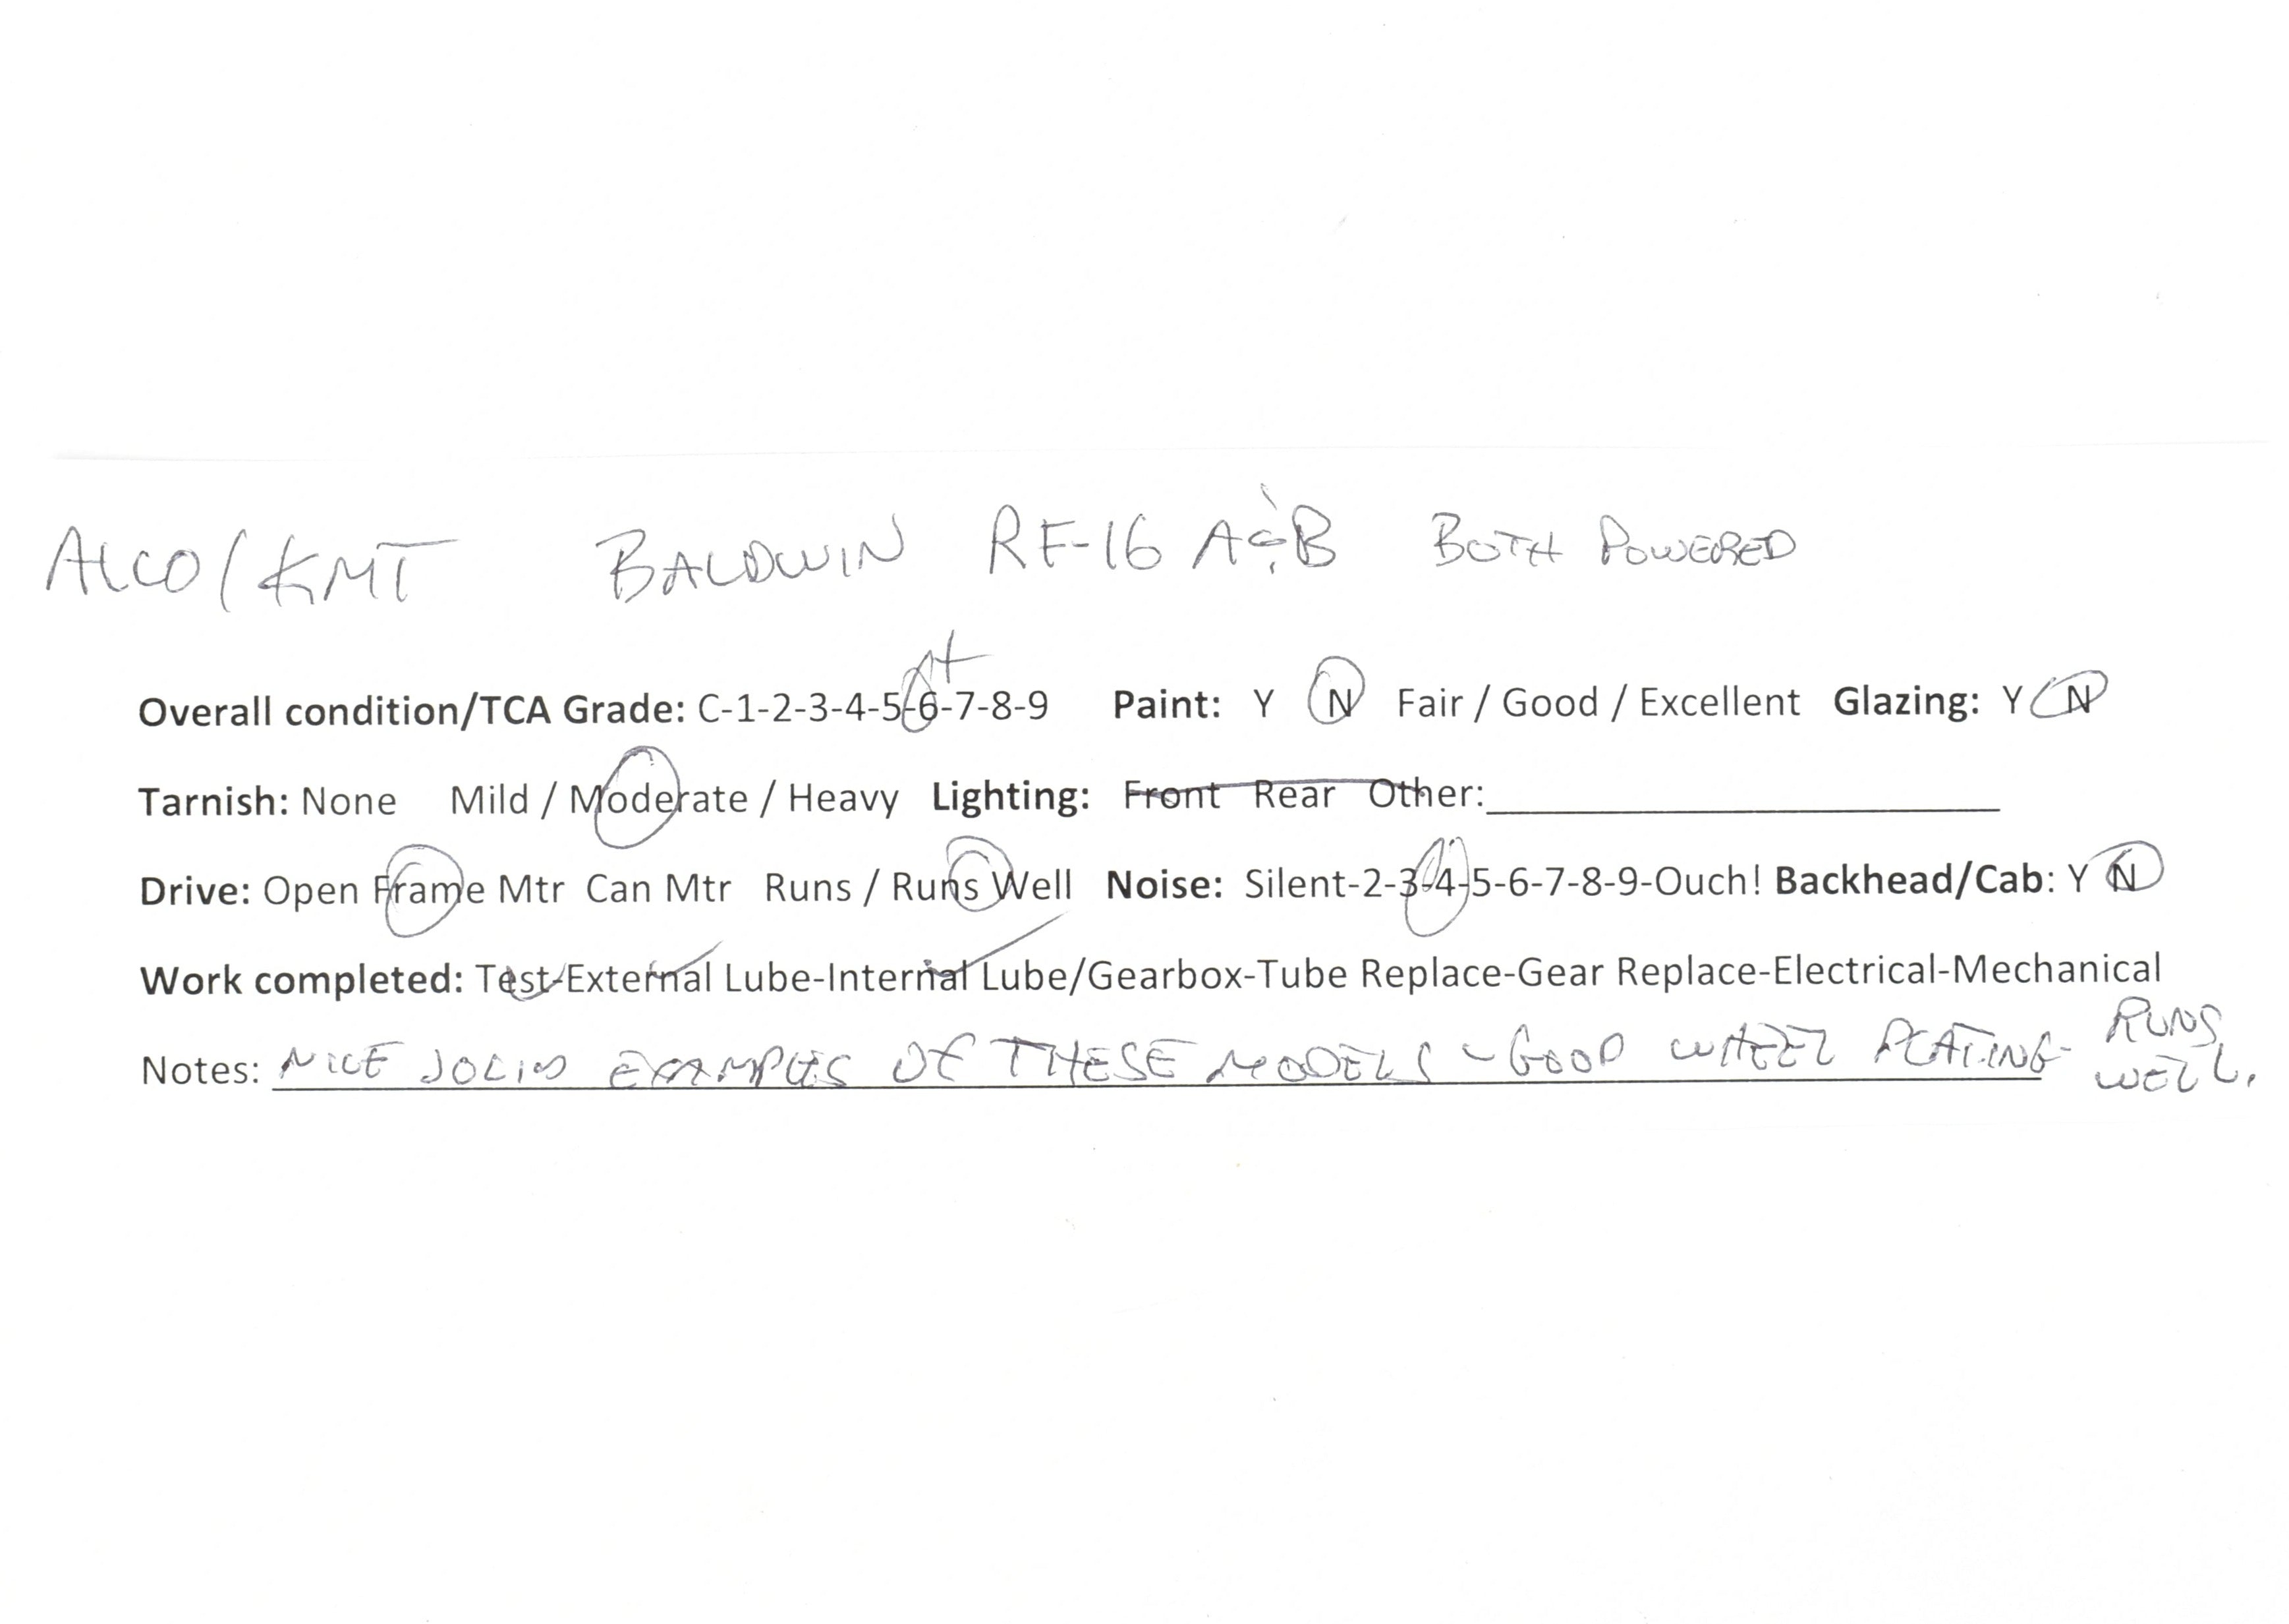 ALCO/KMT BALDWIN RF-16 A&B BOTH POWERED
Overall condition/TCA Grade: C-1-2-3-4-5-6-7-8-9 + Paint: Y N Fair / Good / Excellent Glazing: Y N
Tarnish: None Mild / Moderate / Heavy Lighting: Front Rear Other:
Drive: Open Frame Mtr Can Mtr Runs / Runs Well Noise: Silent-2-3-4-5-6-7-8-9-Ouch! Backhead/Cab: Y N
Work completed: Test-External Lube-Internal Lube/Gearbox-Tube Replace-Gear Replace-Electrical-Mechanical
Notes: NICE SOLID EXAMPLES OF THESE MODELS - GOOD WHEEL PLATING - RUNS
WELL.